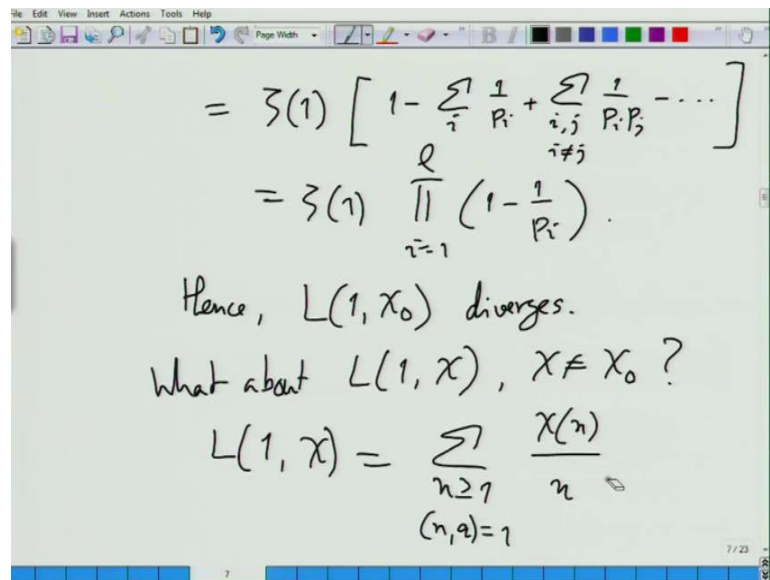 File Edit View Insert Actions Tools Help
Page Width
= ζ(1) [ 1 - Σ_i 1/p_i + Σ_{i,j i≠j} 1/(p_i p_j) - .... ]
= ζ(1) ∏_{i=1}^{l} (1 - 1/p_i).
Hence, L(1, χ₀) diverges.
What about L(1, χ), χ ≠ χ₀ ?
L(1, χ) = Σ_{n≥1 (n,q)=1} χ(n)/n
7/23
7